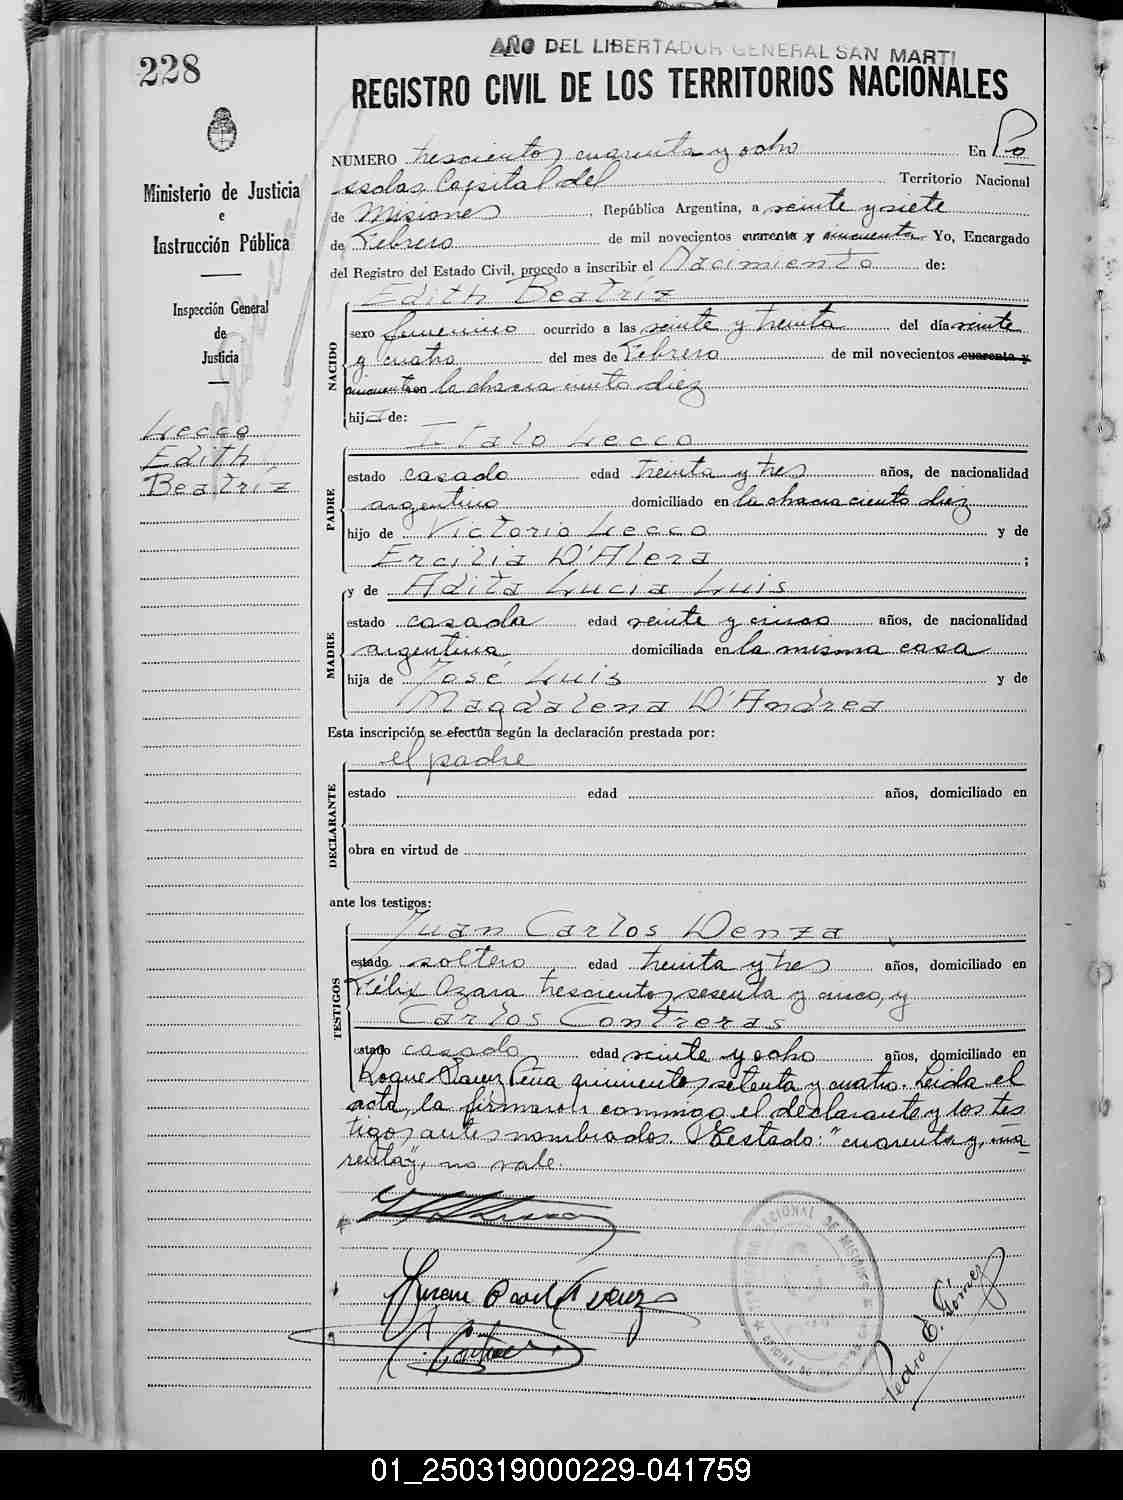 228
AÑO DEL LIBERTADOR GENERAL SAN MARTI
REGISTRO CIVIL DE LOS TERRITORIOS NACIONALES
Ministerio de Justicia
e
Instrucción Pública
Inspección General
de
Justicia
Lecco
Edith
Beatríz
NUMERO trescientos cuarenta y ocho En Po
ssdas, Capital del Territorio Nacional
de Misiones, República Argentina, a veinte y siete
de Febrero de mil novecientos cuarenta y cincuenta Yo, Encargado
del Registro del Estado Civil, procedo a inscribir el Nacimiento de:
Edith Beatríz
NACIDO
sexo femenino ocurrido a las veinte y treinta del día veinte
y cuatro del mes de Febrero de mil novecientos cuarenta y
cincuenta en la chacra ciento diez
hija de:
Italo Lecco
PADRE
estado casado edad treinta y tres años, de nacionalidad
argentino domiciliado en la chacra ciento diez
hijo de Victorio Lecco y de
Ercilia D'Alera ;
y de Adita Lucia Luis
MADRE
estado casada edad veinte y cinco años, de nacionalidad
argentina domiciliada en la misma casa
hija de José Luis y de
Magdalena D'Andrea
Esta inscripción se efectúa según la declaración prestada por:
el padre
DECLARANTE
estado edad años, domiciliado en
obra en virtud de
ante los testigos:
Juan Carlos Denza
TESTIGOS
estado soltero edad treinta y tres años, domiciliado en
Félix Azara trescientos sesenta y cinco, y
Carlos Contreras
estado casado edad veinte y ocho años, domiciliado en
Roque Saenz Peña quinientos setenta y cuatro. Leida el
acta, la firmaron conmigo el declarante y los tes
tigos antes nombrados. Testado: "cuarenta y, cua
renta y", no vale.
Pedro E. Gómez
01_250319000229-041759